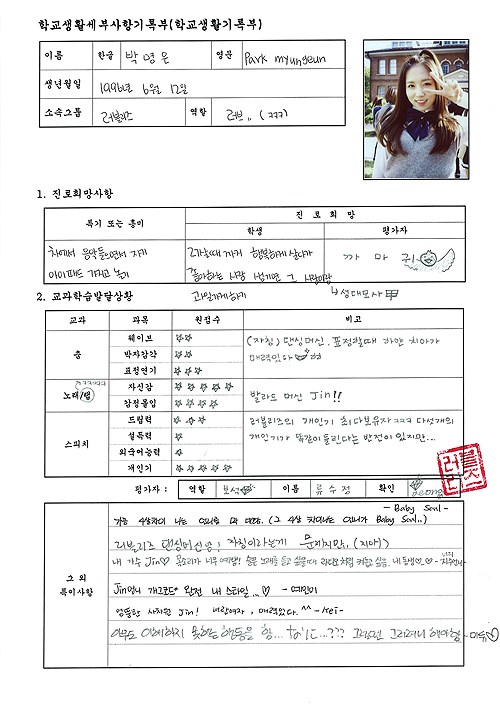 학교생활세부사항기록부(학교생활기록부)
이름 한글 박명은 영문 Park myungeun
생년월일 1996년 6월 12일
소속그룹 러블리즈 역할 러브.. (ㅋㅋㅋ)
1. 진로희망사항
특기 또는 흥미 진 로 희 망
학생 평가자
차에서 음악들으면서 자기
아이패드 가지고 놀기
행복하게 살다가
좋아하는 사람 생기면 그 사람이랑
결혼하기
까 마 귀
성대모사
2. 교과학습발달상황
교과 과목 원점수 비고
춤
웨이브 ☆☆
박자감각 ☆☆
표정연기 ☆☆☆
(자칭) 댄싱머신. 표정할때 하얀 치아가
매력있다
노래/랩
자신감 ☆☆☆☆☆
감정몰입 ☆☆☆☆
발라드 머신 Jin!!
스피치
드립력 ☆☆
설득력 ☆
외국어능력 ☆
개인기 ☆☆☆☆☆
러블리즈의 개인기 최다보유자ㅋㅋㅋ 다섯개의
개인기가 똑같이 들린다는 반전이 있지만...
러블리즈
평가자 : 역할 보석 이름 류수정 확인
그 외
특이사항
- Baby Soul -
가끔 4살차이 나는 언니를 (그 4살 차이나는 언니가 Baby Soul..)
러블리즈 댄싱머신! 자칭이라는게 문제지만.. (지애)
내 가수 Jin♡ 목소리가 너무 예뻐! 내 동생♡
Jin언니 개그코드 완전 내 스타일..♡ - 예인이
엉뚱한 사차원 Jin! 매력있다.^^ - kei -
아무도 이해하지 못하는 행동을 함...???